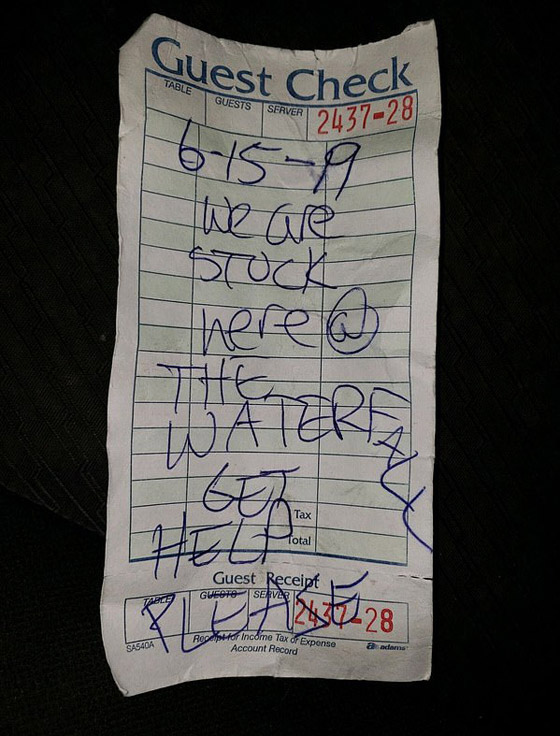 Guest Check
TABLE GUESTS SERVER
2437-28
6-15-19
We are
STUCK
here @
THE
WATERFALL
GET
Tax
HELP
Total
Guest Receipt
TABLE GUESTS SERVER
PLEASE
2437-28
Receipt for Income Tax or Expense
SA540A Account Record adams